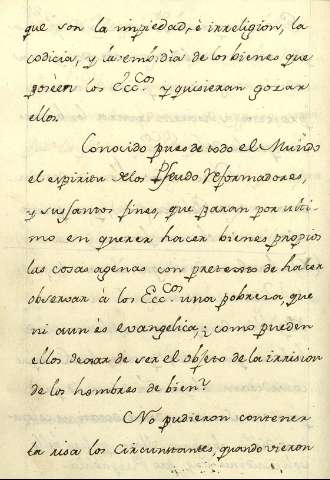 que son la impiedad, è irreligion, la
codicia, y la embidia de los bienes que
poséen los Ecc.cos y quisieran gozar
ellos.
Conocido pues de todo el Mundo
el espiritu de los Pseudo Reformadores,
y sus santos fines, que paran por ulti
mo en querer hacer bienes propios
las cosas agenas con pretexto de hacer
observar à los Ecc.cos una pobreza, que
ni aun es evangelica; ¿como pueden
ellos dexar de ser el objeto de la irrision
de los hombres de bien?
No pudieron contener
la risa los Circunstantes, quando vieron